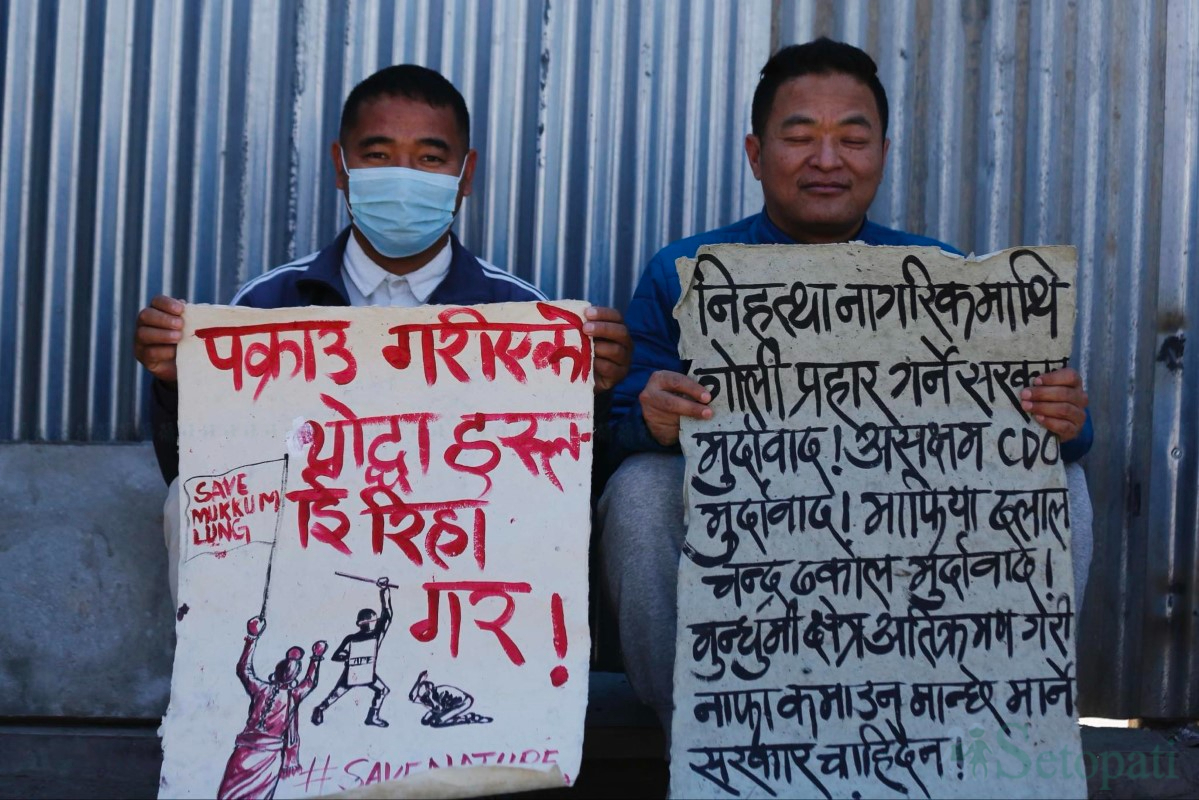 पक्राउ गरीएको
योद्धा हरूला-
ई रिहा
गर !
SAVE
MUKKUM
LUNG
#SAVENATURE
निहत्था नागरिकमाथि
गोली प्रहार गर्ने सरकार
मुर्दावाद ! असक्षम CDO
मुर्दावाद ! माफिया दलाल
चन्द्र ढकाल मुर्दावाद !
मुन्धुमी क्षेत्र अतिक्रमण गरी
नाफा कमाउन मान्छे मार्ने
सरकार चाहिदैन !
Setopati